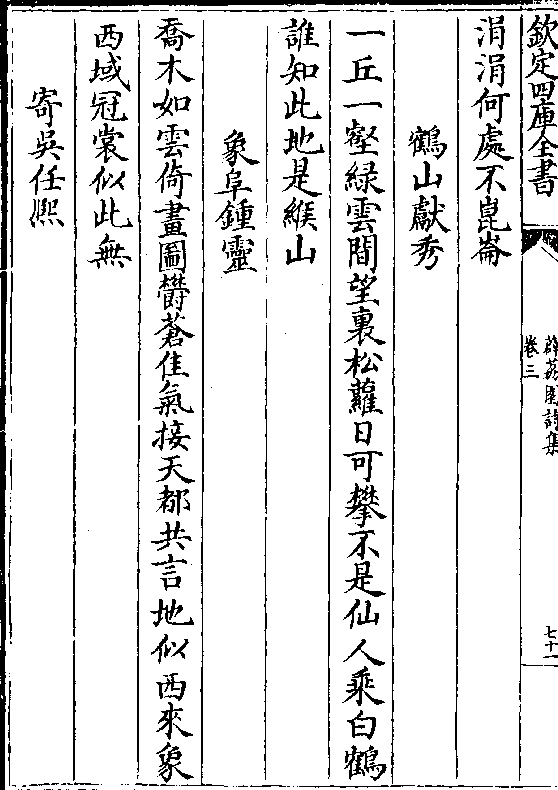 欽定四庫全書
卷三
七十一
涓涓何處不崑崙
鶴山獻秀
一丘一壑綠雲間望裏松蘿日可攀不是仙人乘白鶴
誰知此地是緱山
象阜鍾靈
喬木如雲倚畫圖欝蒼佳氣接天都共言地似西來象
西域冠裳似此無
寄吳任熈